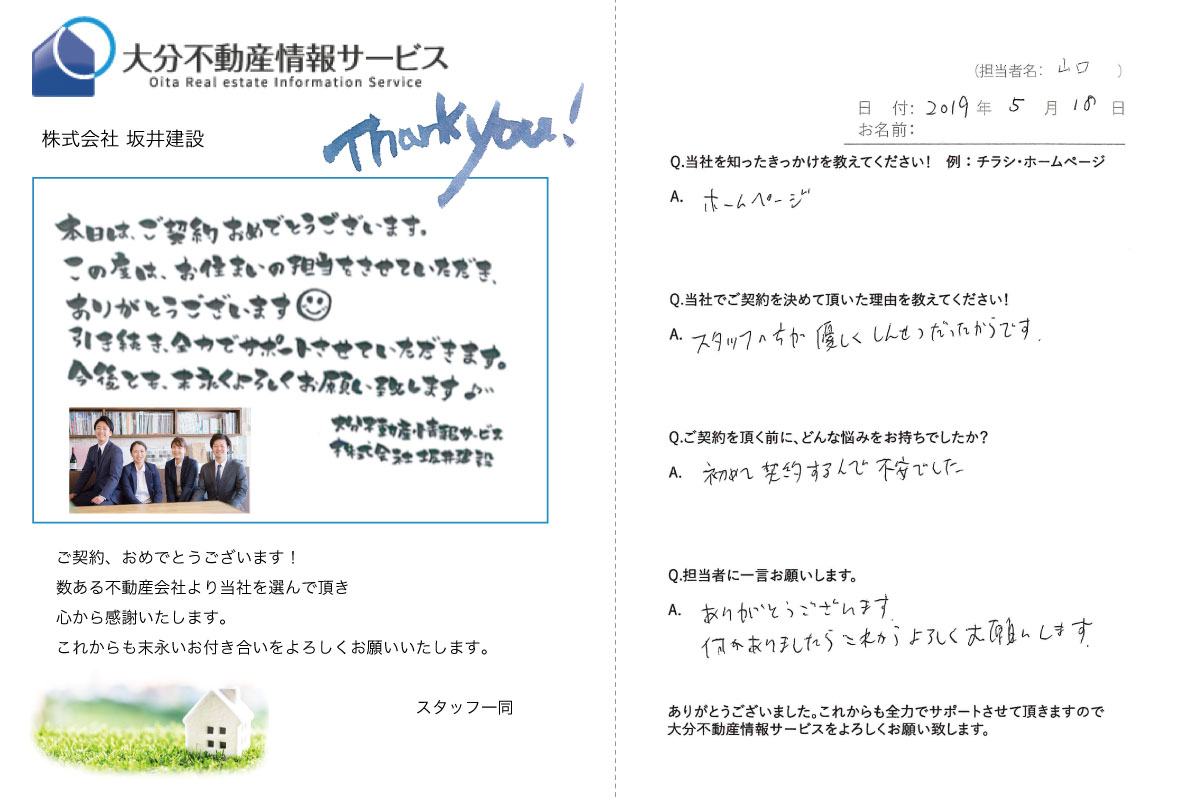 大分不動産情報サービス
Oita Real estate Information Service
株式会社 坂井建設
Thank you!
本日は、ご契約おめでとうございます。
この度は、お住まいの担当をさせていただき、
ありがとうございます
引き続き、全力でサポートさせていただきます。
今後とも、末永くよろしくお願い致します♪
大分不動産情報サービス
株式会社 坂井建設
ご契約、おめでとうございます！
数ある不動産会社より当社を選んで頂き
心から感謝いたします。
これからも末永いお付き合いをよろしくお願いいたします。
スタッフ一同
（担当者名： 山口 ）
日 付： 2019 年 5 月 18 日
お名前：
Q.当社を知ったきっかけを教えてください！ 例：チラシ・ホームページ
A. ホームページ
Q.当社でご契約を決めて頂いた理由を教えてください！
A. スタッフの方が優しくしんせつだったからです.
Q.ご契約を頂く前に、どんな悩みをお持ちでしたか？
A. 初めて契約するんで不安でした
Q.担当者に一言お願いします。
A. ありがとうございます.
何かありましたらこれからよろしくお願いします.
ありがとうございました。これからも全力でサポートさせて頂きますので
大分不動産情報サービスをよろしくお願い致します。